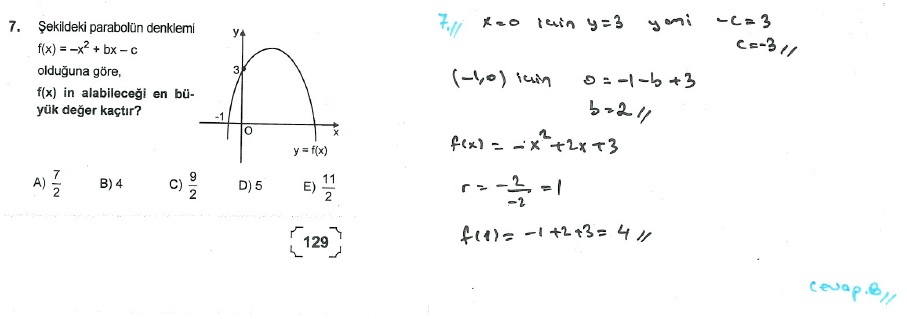 7. Şekildeki parabolün denklemi
f(x) = –x² + bx – c
olduğuna göre,
f(x) in alabileceği en bü-
yük değer kaçtır?
y
3
-1
O
x
y = f(x)
A) 7/2 B) 4 C) 9/2 D) 5 E) 11/2
129
7.// x=0 için y=3 yani -c=3
c=-3//
(-1,0) için 0=-1-b+3
b=2//
f(x) = -x²+2x+3
r = -2/-2 = 1
f(1) = -1+2+3 = 4//
cevap.B//